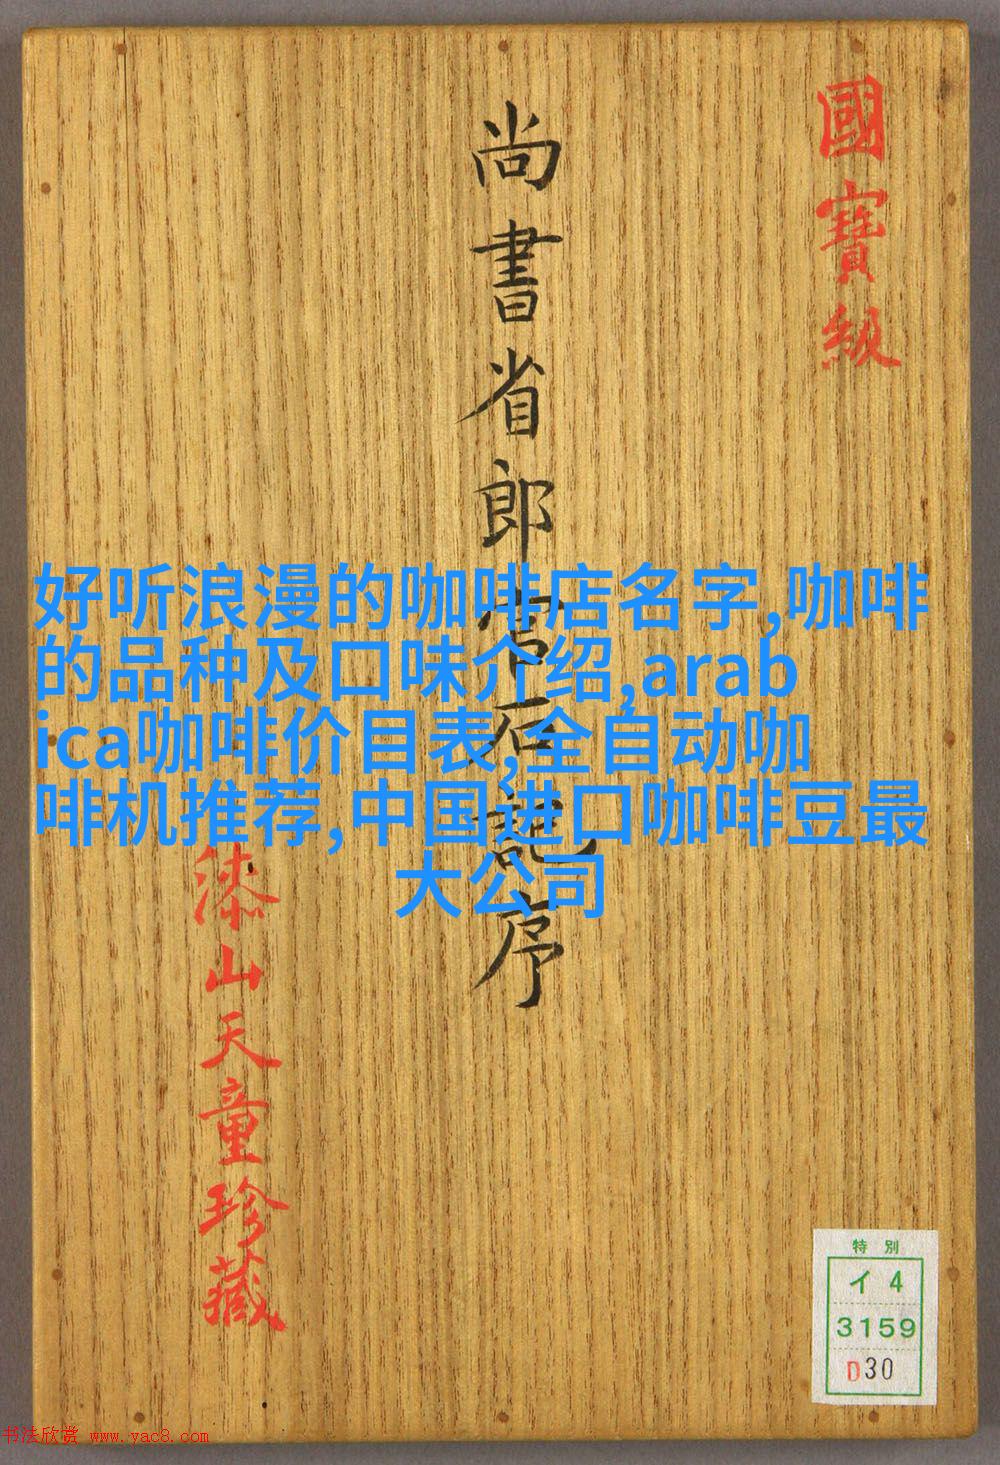 國寶級
尚書省郎官石記序
好听浪漫的咖啡店名字,咖啡
的品种及口味介绍,arab
ica咖啡价目表,全自动咖
啡机推荐,中国进口咖啡豆最
大公司
漆山天童珍藏
特別
イ4
3159
D30
书法欣赏 www.yac8.com